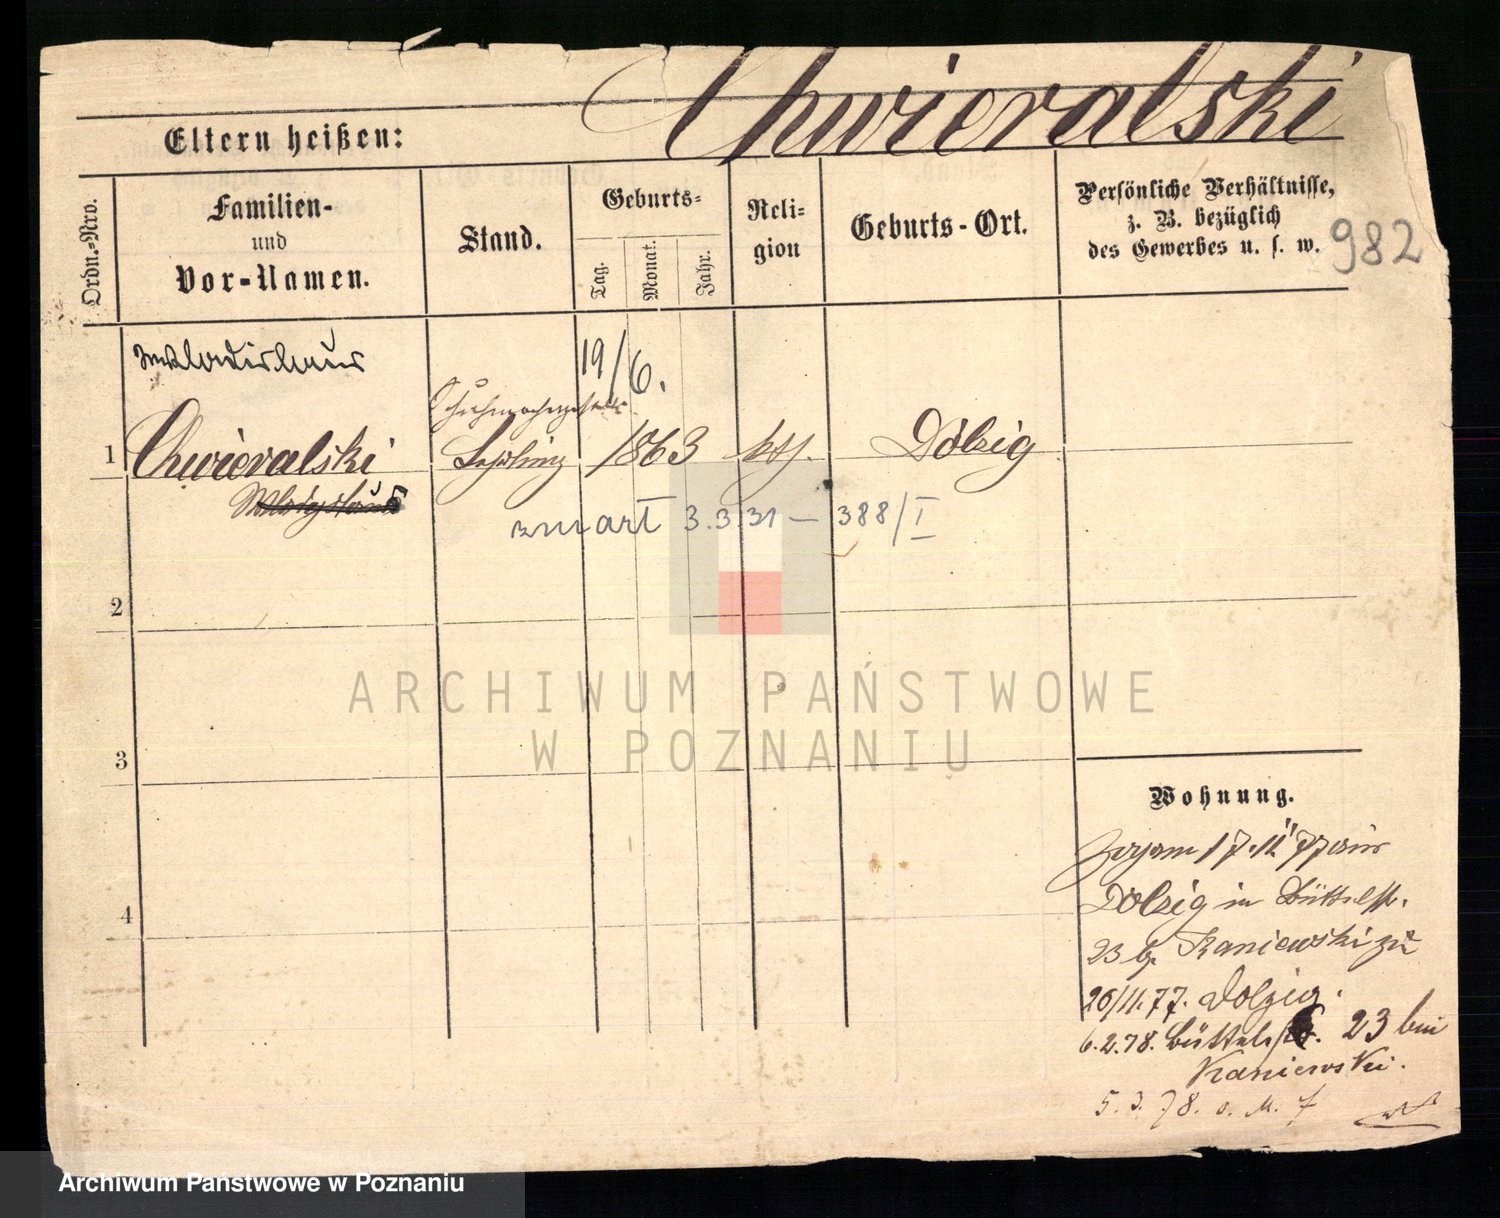 Chwieralski
Eltern heißen:
Ordn.-Nro.
Familien-
und
Vor-Namen.
Stand.
Geburts-
Tag.
Monat.
Jahr.
Reli-
gion
Geburts-Ort.
Persönliche Verhältnisse,
z. B. bezüglich
des Gewerbes u. s. w.
982
Wladislaus
19/6.
1
Chwieralski
Lehrling
1863
kth.
Dolzig
Wladyslaus
zmarł 3.3.31 – 388/I
2
ARCHIWUM PAŃSTWOWE
W POZNANIU
3
Wohnung.
4
Zugam 17.11 77 aus
Dolzig in Büttelst.
23 b. Kaniewski zu
20/11.77. Dolzig.
6.2.78. Büttelst. 23 bei
Kaniewski.
5.3.78. o. M. 7
Archiwum Państwowe w Poznaniu